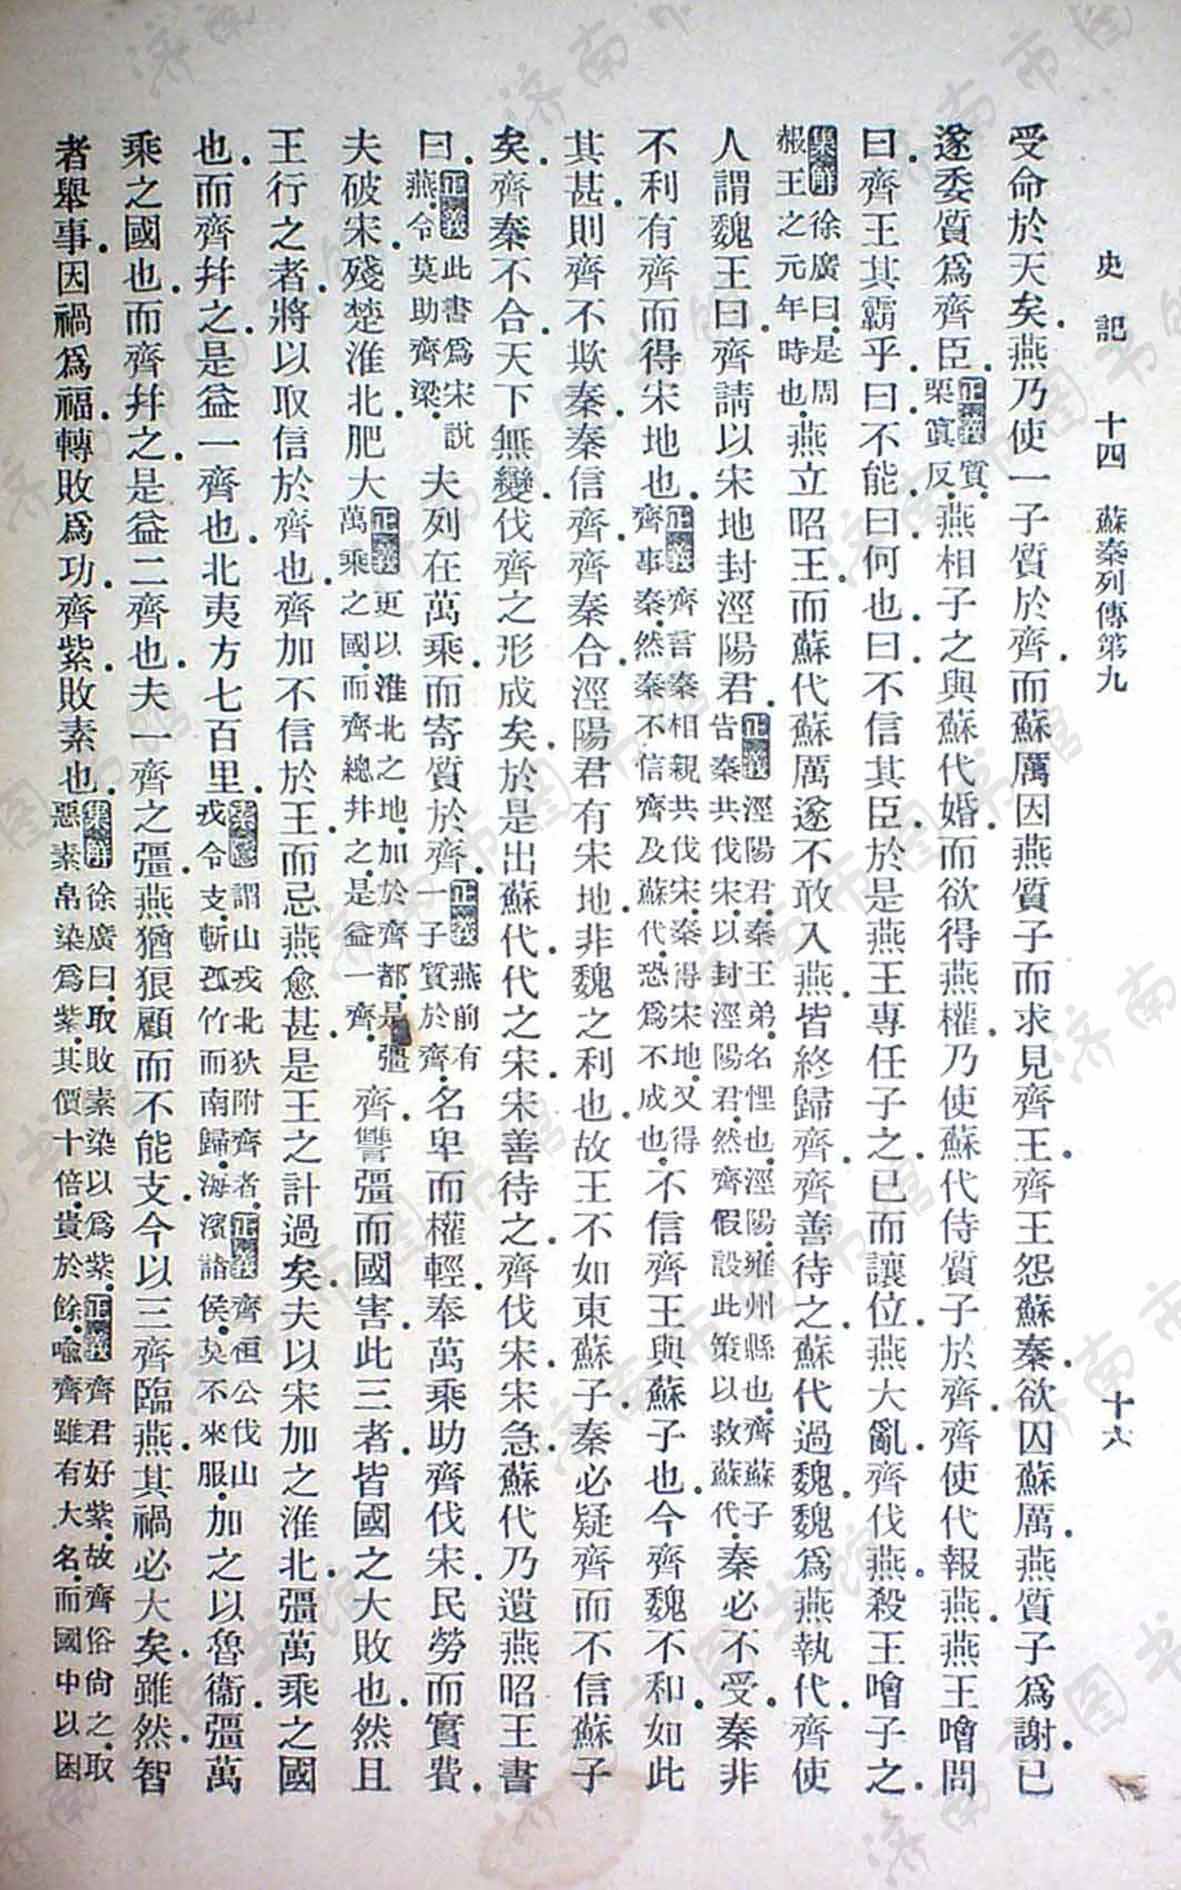 史記　十四　蘇秦列傳第九　十六
受命於天矣.燕乃使一子質於齊.而蘇厲因燕質子而求見齊王.齊王怨蘇秦.欲囚蘇厲.燕質子爲謝.已
遂委質爲齊臣.正義質.栗眞反.燕相子之與蘇代婚.而欲得燕權.乃使蘇代侍質子於齊.齊使代報燕.燕王噲問
曰.齊王其霸乎.曰.不能.曰.何也.曰.不信其臣.於是燕王專任子之.已而讓位.燕大亂.齊伐燕.殺王噲子之.
集解徐廣曰.是周赧王之元年時也.燕立昭王.而蘇代蘇厲遂不敢入燕.皆終歸齊.齊善待之.蘇代過魏.魏爲燕執代.齊使
人謂魏王曰.齊請以宋地封涇陽君.正義涇陽君.秦王弟.名悝也.涇陽.雍州縣也.齊蘇子告秦共伐宋.以封涇陽君.然齊假設此策以救蘇代.秦必不受.秦非
不利有齊而得宋地也.正義齊言秦相親共伐宋.秦得宋地.又得齊事秦.然秦不信齊及蘇代.恐爲不成也.不信齊王與蘇子也.今齊魏不和.如此
其甚.則齊不欺秦.秦信齊.齊秦合.涇陽君有宋地.非魏之利也.故王不如東蘇子.秦必疑齊而不信蘇子
矣.齊秦不合.天下無變.伐齊之形成矣.於是出蘇代.代之宋.宋善待之.齊伐宋.宋急.蘇代乃遺燕昭王書
曰.正義此書爲宋說燕.令莫助齊梁.夫列在萬乘.而寄質於齊.正義燕前有一子質於齊.名卑而權輕.奉萬乘助齊伐宋.民勞而實費.
夫破宋.殘楚淮北.肥大正義更以淮北之地.加於齊都.是彊萬乘之國.而齊總幷之.是益一齊.齊.讐彊而國害.此三者.皆國之大敗也.然且
王行之者.將以取信於齊也.齊加不信於王.而忌燕愈甚.是王之計過矣.夫以宋加之淮北.彊萬乘之國
也.而齊幷之.是益一齊也.北夷方七百里.索隱謂山戎北狄附齊者.正義齊桓公伐山戎令支.斬孤竹而南歸.海濱諸侯.莫不來服.加之以魯衞.彊萬
乘之國也.而齊幷之.是益二齊也.夫一齊之彊.燕猶狼顧而不能支.今以三齊臨燕.其禍必大矣.雖然.智
者舉事.因禍爲福.轉敗爲功.齊紫.敗素也.集解徐廣曰.取敗素染以爲紫.正義齊君好紫.故齊俗尙之.取惡素帛染爲紫.其價十倍.貴於餘.喩齊雖有大名.而國中以困